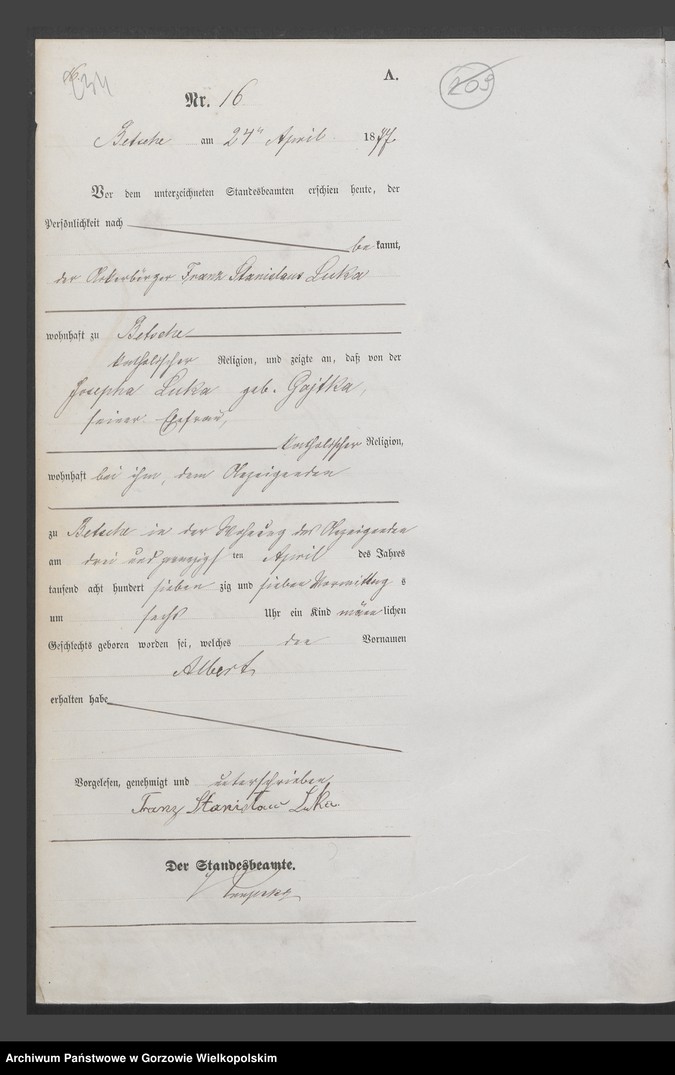 A.
209
Nr. 16
Betsche am 24ten April 1877.
Vor dem unterzeichneten Standesbeamten erschien heute, der
Persönlichkeit nach
be kannt,
der Ackerbürger Franz Stanislaus Luka
wohnhaft zu Betsche
katholischer Religion, und zeigte an, daß von der
Josepha Luka geb. Gajtka,
seiner Ehefrau,
katholischer Religion,
wohnhaft bei ihm, dem Anzeigenden
zu Betsche in der Wohnung des Anzeigenden
am drei und zwanzigs ten April des Jahres
tausend acht hundert sieben zig und sieben Vormittag s
um sechs Uhr ein Kind männ lichen
Geschlechts geboren worden sei, welches den Vornamen
Albert
erhalten habe
Vorgelesen, genehmigt und unterschrieben
Franz Stanislaus Luka
Der Standesbeamte.
Archiwum Państwowe w Gorzowie Wielkopolskim